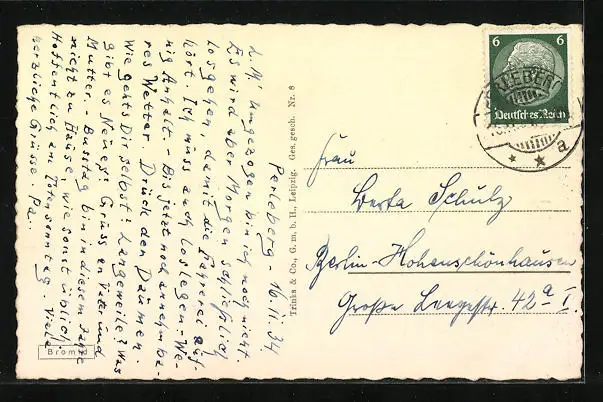 Perleberg - 16.11.34.
L. M! Umgezogen bin ich noch nicht
Es wird aber Morgen schließlich
losgehen, damit die Fahrerei auf-
hört. Ich muss auch loslegen - We-
nig Anhalt - Bis jetzt noch annehmba-
res Wetter. Drück den Daumen.
Wie gehts Dir selbst? Langeweile? Was
gibt es Neues? Gruss an Vater und
Mutter. - Busstag bin in diesem Jahre
nicht zu Hause, wie sonst üblich.
Hoffentlich am Totensonntag. Viele
herzliche Grüsse. Pa.
Bromyd
Trinks & Co., G. m. b. H., Leipzig. Ges. gesch. Nr. 8
6 6
Deutsches Reich
PERLEBERG
a
Frau
Berta Schulz
Berlin-Hohenschönhausen
Große Leegestr. 42a I.